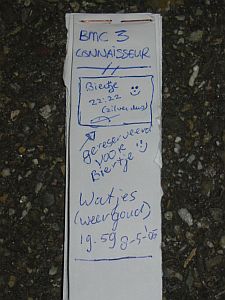 BMC 3
CONNAISSEUR
Biertje
22:22
(zilver dus)
gereserveerd
voor
Biertje
Watjes
(weer goud)
19-59 8-5-'05